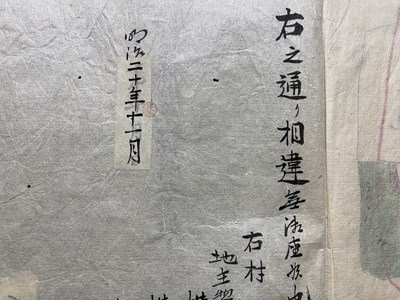 右之通り相違無御座候也
明治二十年十一月
右村
地主惣